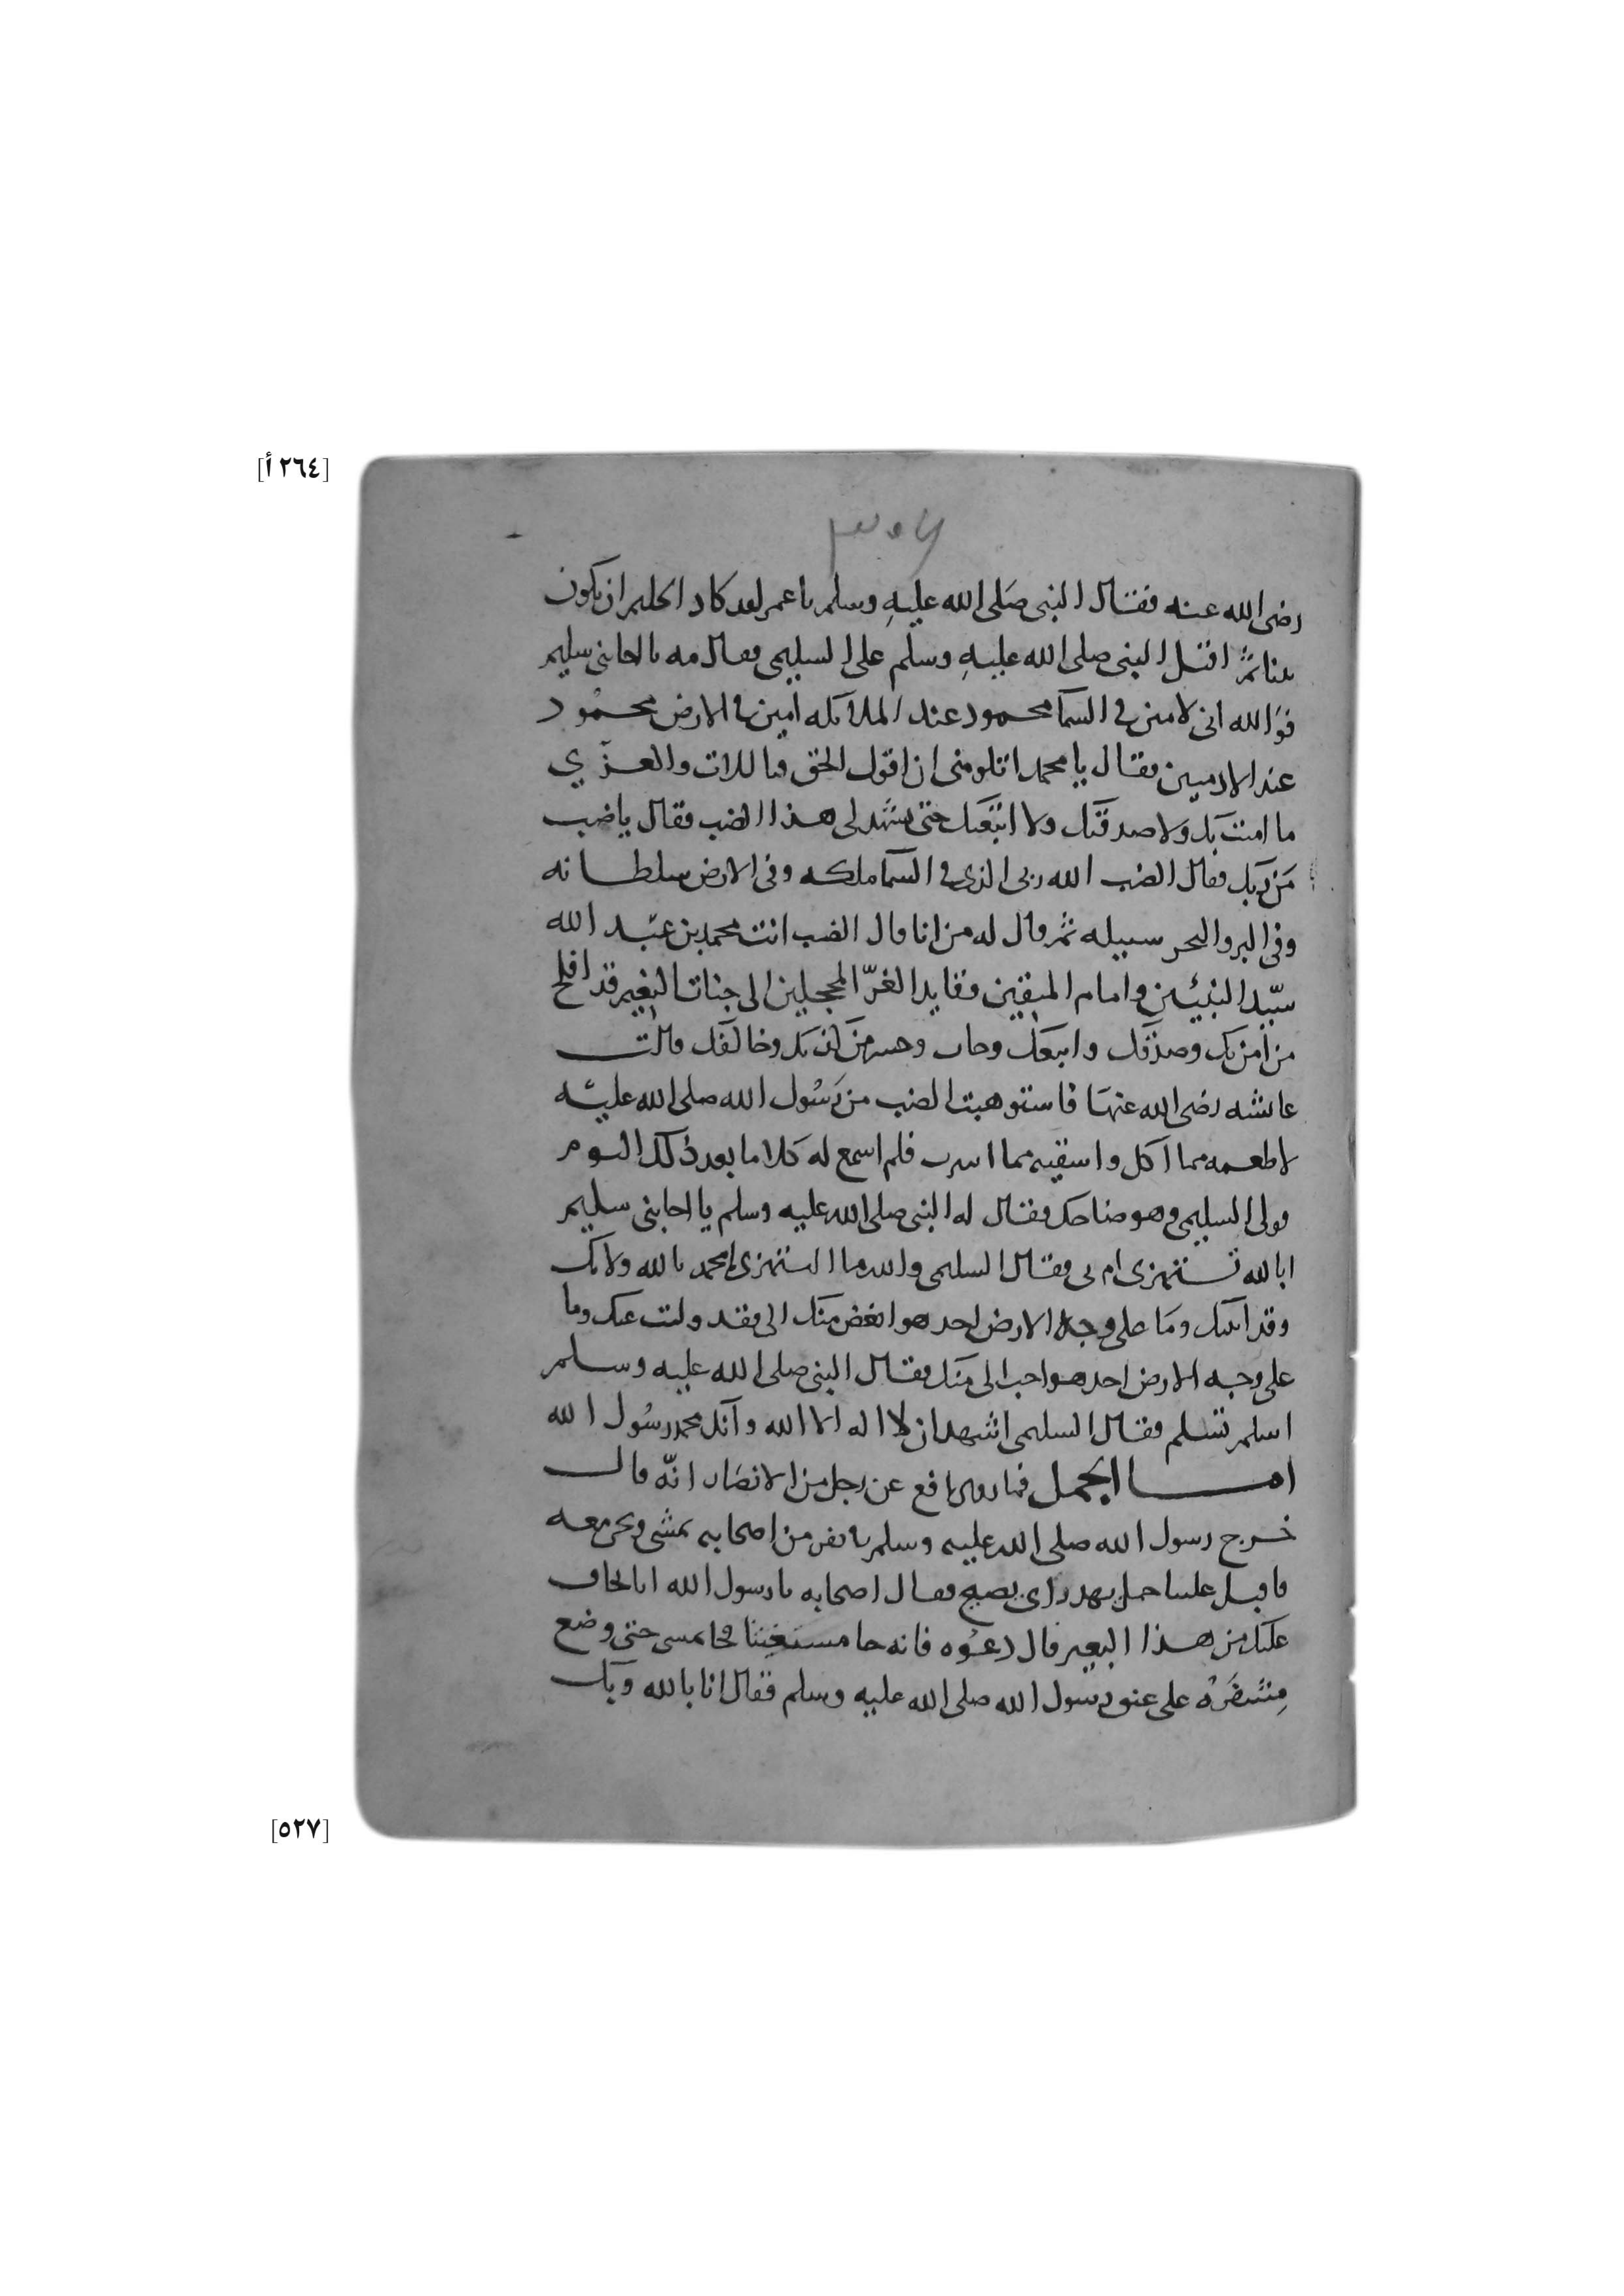 [٢٦٤ أ]
رضى الله عنه فقال النبى صَلى الله عليهِ وسلم يا عمر لقد كاد الحليم ان يكون
اقبل النبى صلى الله عليهِ وسلم على السليمى وقال مه يا اخا بنى سليم
فوَالله انى لامين فى السمآ محمود عند الملآئكه امين فى الارض محمُود
عند الادميين فقال يا محمد اتلومنى ان اقول الحق وباللات والعزّي
ما امنت بك ولا صدقتك ولا اتبعتك حتى يشهد لى هذا الضب فقال يا ضب
مَن ربك فقال الضب الله ربى الذى فى السمآ ملكه وفى الارض سلطانه
وفى البر والبحر سبيله ثم قال له من انا قال الضب انت محمد بن عبْد الله
سيّد النبيين وامام المتقين وقايد الغرّ المحجلين الى جنات النعيم قد افلح
من آمن بك وصدّقك واتبعك وخاب وخسر من كذبك وخالفك قالت
عائشه رضى الله عنهَا فاستوهبت الضب من رَسُول الله صلى الله عليْه
لاطعمه مما آكل واسقيه مما اشرب فلم اسمع له كلاما بعد ذلك اليوم
فولى السليمى وهو ضاحك فقال له النبى صلى الله عليه وسلم يا اخا بنى سليم
ابالله تستهزى ام بى فقال السليمى والله ما استهزى يا محمد بالله ولا بك
وقد اتيتك ومَا على وجه الارض احد هو ابغض منك الى فقد وليت عنك وما
على وجه الارض احد هو احب الى منك فقال النبى صلى الله عليه وسلم
اسلم تسلم فقال السليمى اشهد ان لا اله الا الله وآنك محمد رسُول الله
امـا الجمل فما روى نافع عن رجل من الانصَار انّه قال
خرج رسول الله صلى الله عليه وسلم يا نفر من اصحابه يمشى ونحن معه
فاقبل علينا جمل يهدر اى يصيح فقال اصحابه يا رسول الله انا نخاف
عليك من هذا البعير قال دعُوه فانه جا مستغيثنا فجا يمسى حتى وضع
مِشفَرُه على عنق رسول الله صلى الله عليه وسلم فقال انا بالله وبك
[٥٢٧]